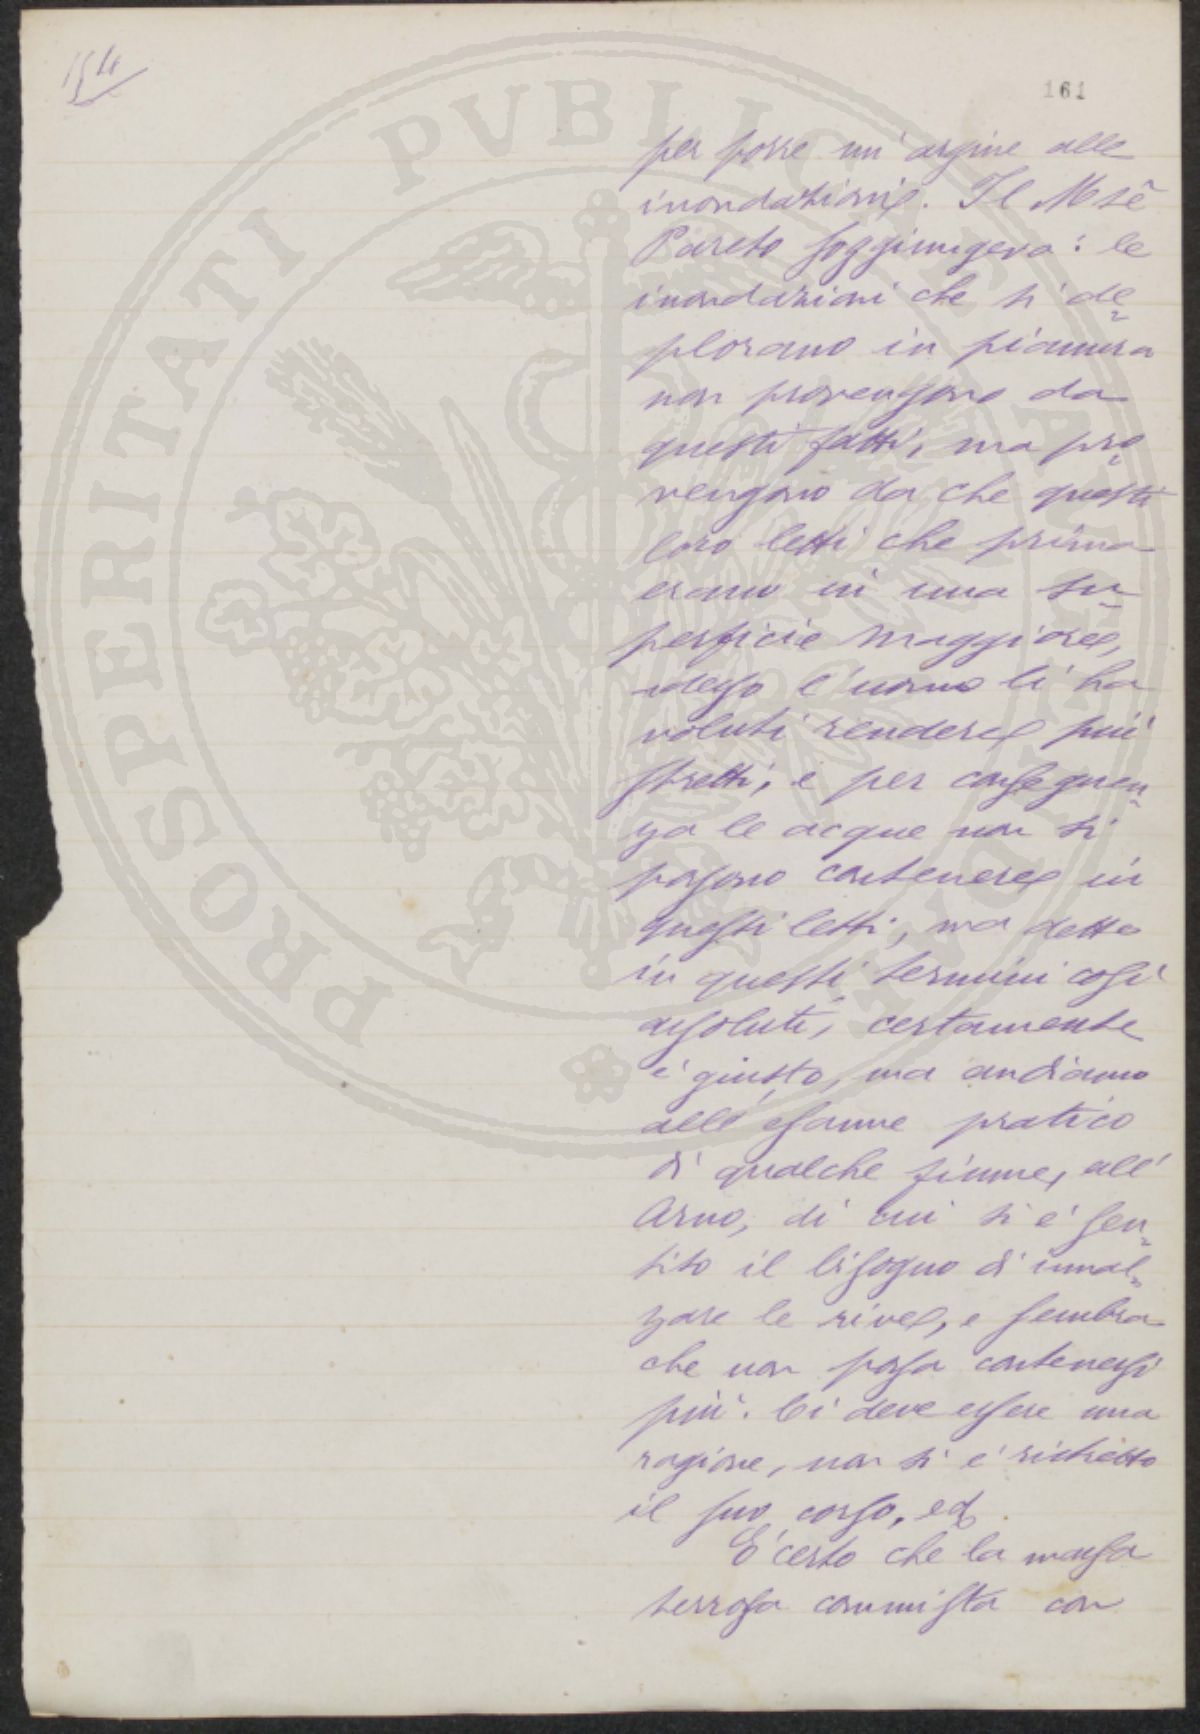 154
161
per porre un'argine alle
inondazioni. Il Mse
Pareto soggiungeva: le
inondazioni che si de=
plorano in pianura
non provengono da
questi fatti, ma pro=
vengono da che questi
loro letti che prima
erano in una su=
perficie maggiore,
adesso l'uomo li ha
voluti rendere più
stretti, e per conseguen=
za le acque non si
possono contenere in
questi letti, ma detto
in questi termini così
assoluti, certamente
è giusto, ma andiamo
all'esame pratico
di qualche fiume, all'
Arno, di cui si è sen=
tito il bisogno di innal=
zare le rive, e sembra
che non possa contenersi
più. Ci deve essere una
ragione, non si è ristretto
il suo corso, ed
È certo che la massa
terrosa commista con
PROSPERITATI PVBLICAE